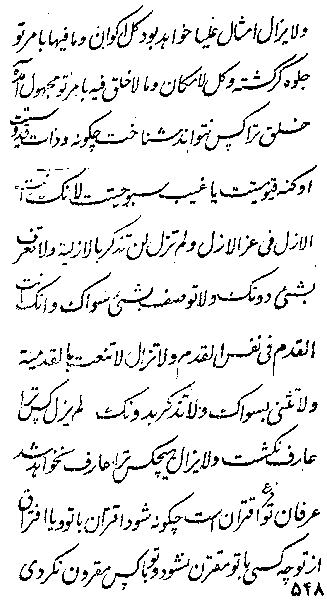 ولا یزال امثال علیا خواهد بود کل اکوان و ما فیها بامر تو
جلوه گر گشته و کل لامکان و ما لا خلق فیه بامر تو مجهول آمده
خلق ترا کس نتواند شناخت چگونه و ذات قدوسیت
او کنه قیومیت یا غیب سبوحیت لانک انت
الازل فی عز الازل و لم تزل لن تذکر بالازلیة ولا تعرف
بشئ دونک ولا توصف بشئ سواک و انک انت
القدم فی نفس القدم ولا تزال لا تنعت بالقدمیة
ولا تثنی بسواک ولا تذکر بدونک لم یزل کس ترا
عارف نگشت ولا یزال هیچکس ترا عارف نخواهد شد
عرفان تو فرع اقتران است چگونه شود اقتران با تو و یا افتراق
از تو چه کسی با تو مقترن نشود و تو با کس مقرون نگردی
۵۴۸